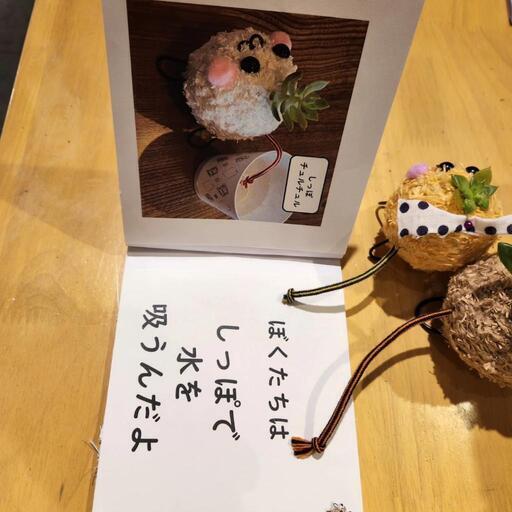 しっぽ
チュルチュル
ぼくたちは
しっぽで
水を
吸うんだよ